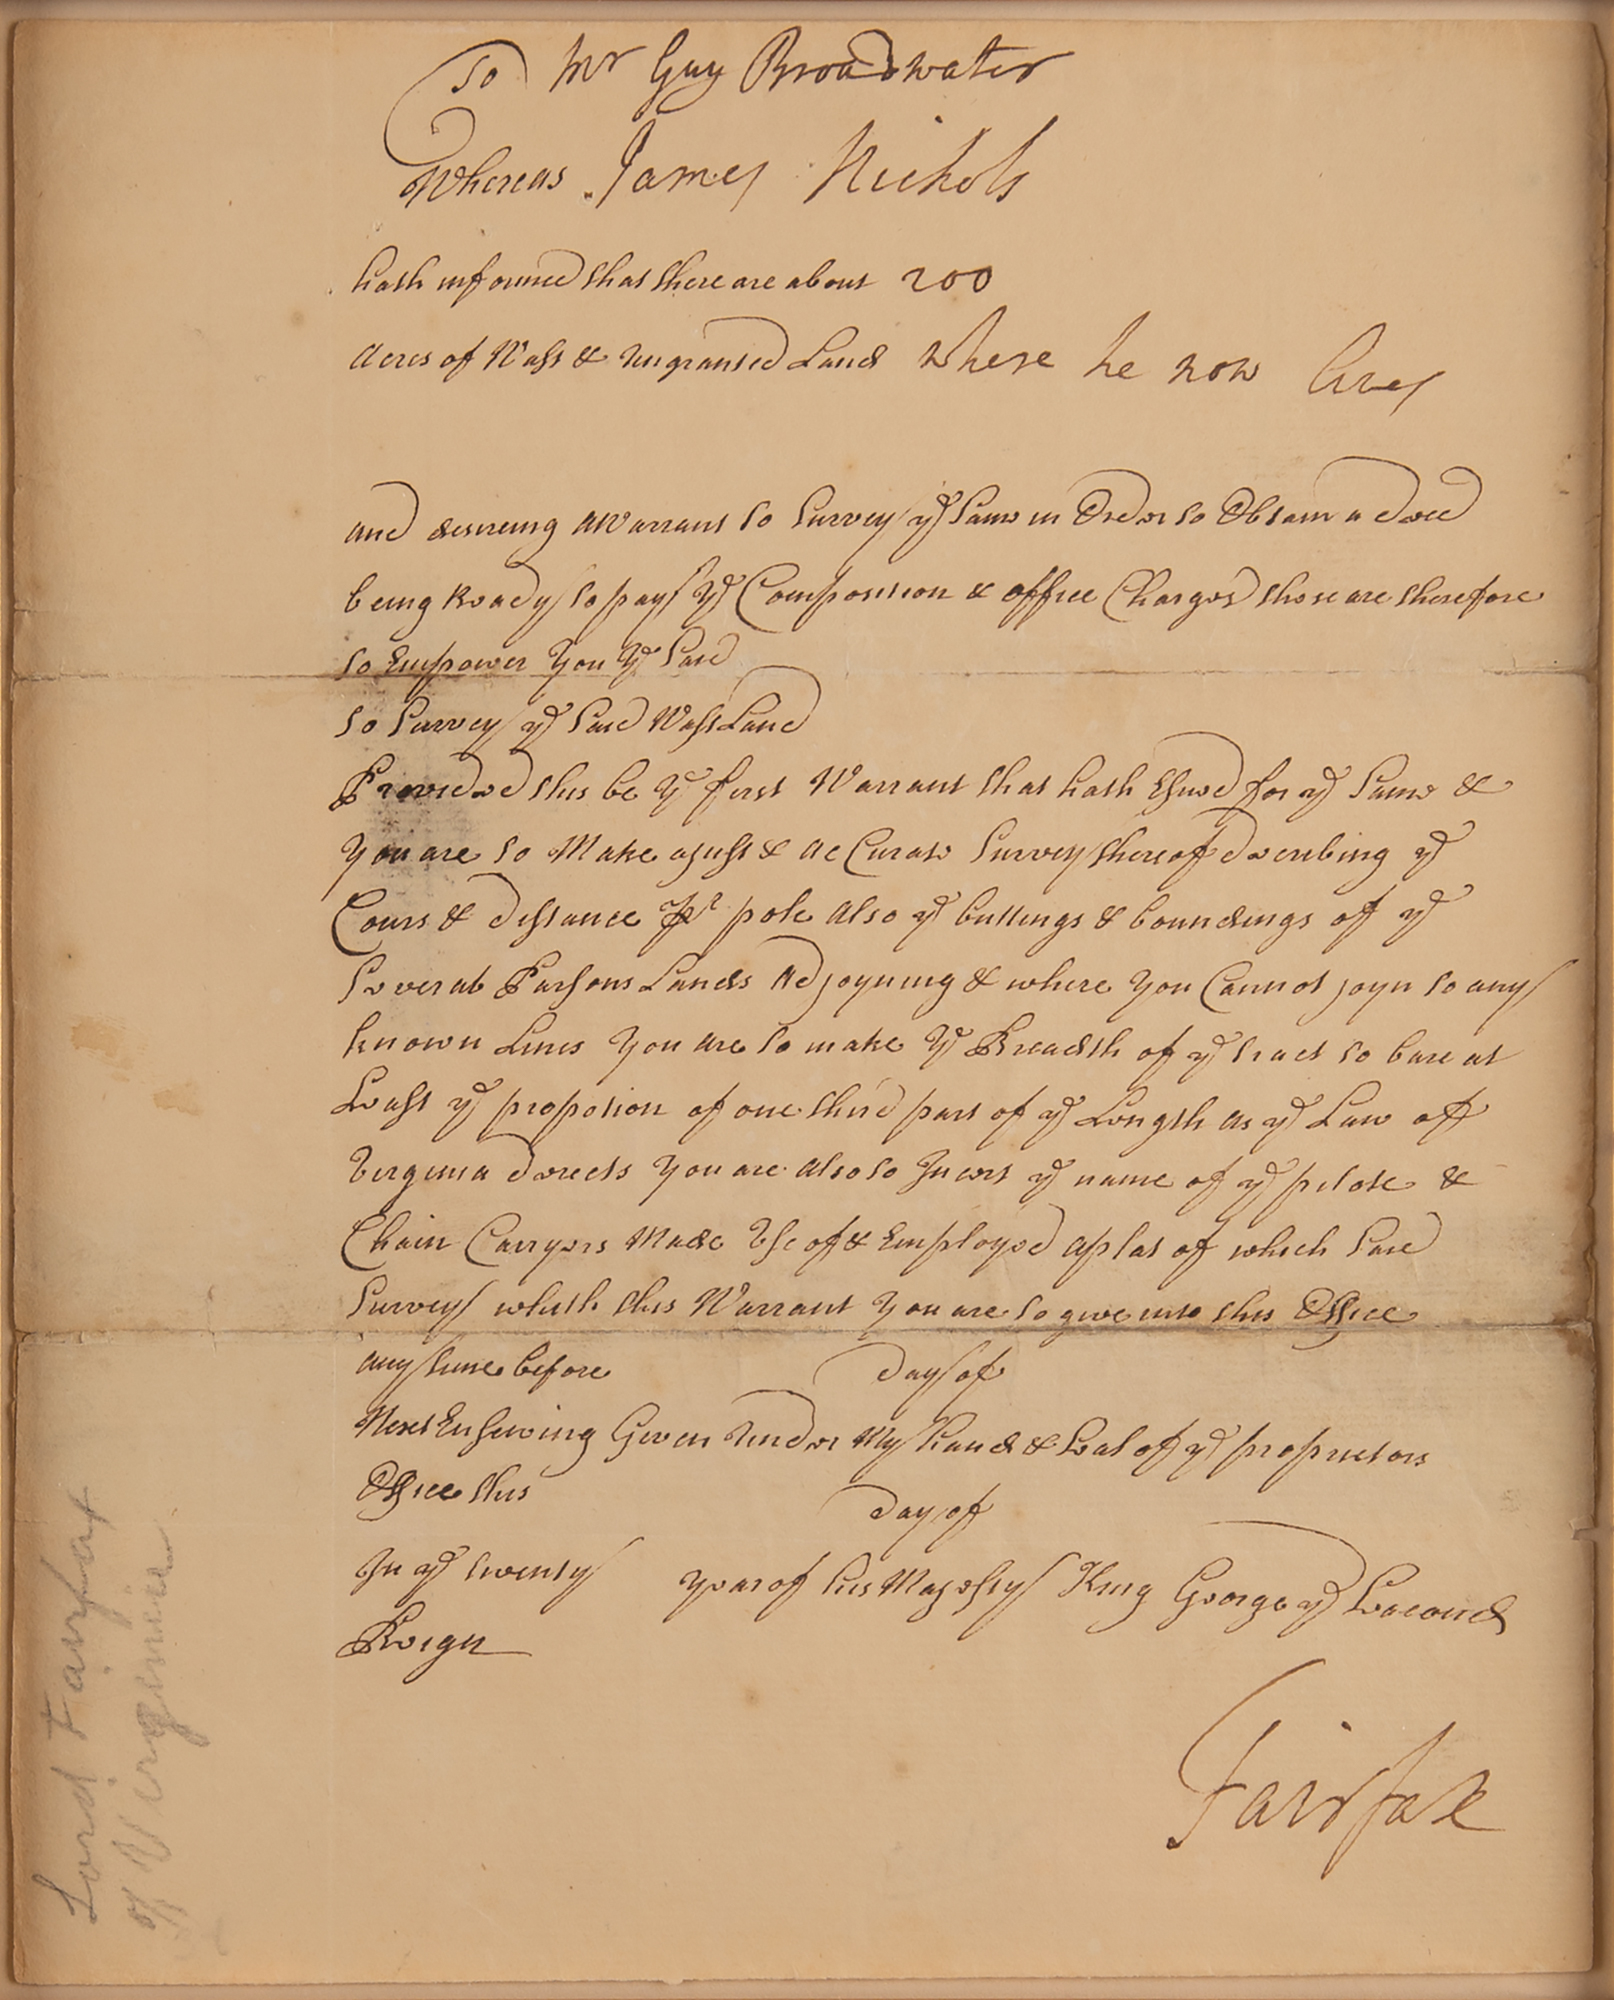 To Mr Guy Broadwater
Whereas James Nichols
hath informed that there are about 200
Acres of Wast & ungranted Land where he now lives
and desireing a Warrant to Survey ye Same in Order to Obtain a deed
being Ready to pay Ye Composition & office Charges those are therefore
to Empower You Ye Said
to Survey ye Said Wast Land
Provided this be Ye first Warrant that hath Esued for ye Same &
You are to Make a just & acCurate Survey thereof desceribing ye
Cours & distance pr pole also ye buttings & boundings of ye
Several Parsons Lands Adjoyning & where You Cannot joyn to any
known Lines You are to make Ye Breadth of ye tract to bare at
Least ye propotion of one third part of ye Length as ye Law off
Verginia directs You are also to Incert ye name of ye pilote &
Chain Carryers Made Use of & Employed a plat of which Said
Survey whith this Warrant You are to give into this Office
any time before day of
Next Ensewing Given under My hand & Seal of ye proprietors
Office this day of
In ye twenty Year of his Majesty King George ye Second
Reign
Fairfax
Lord Fairfax
of Verginia